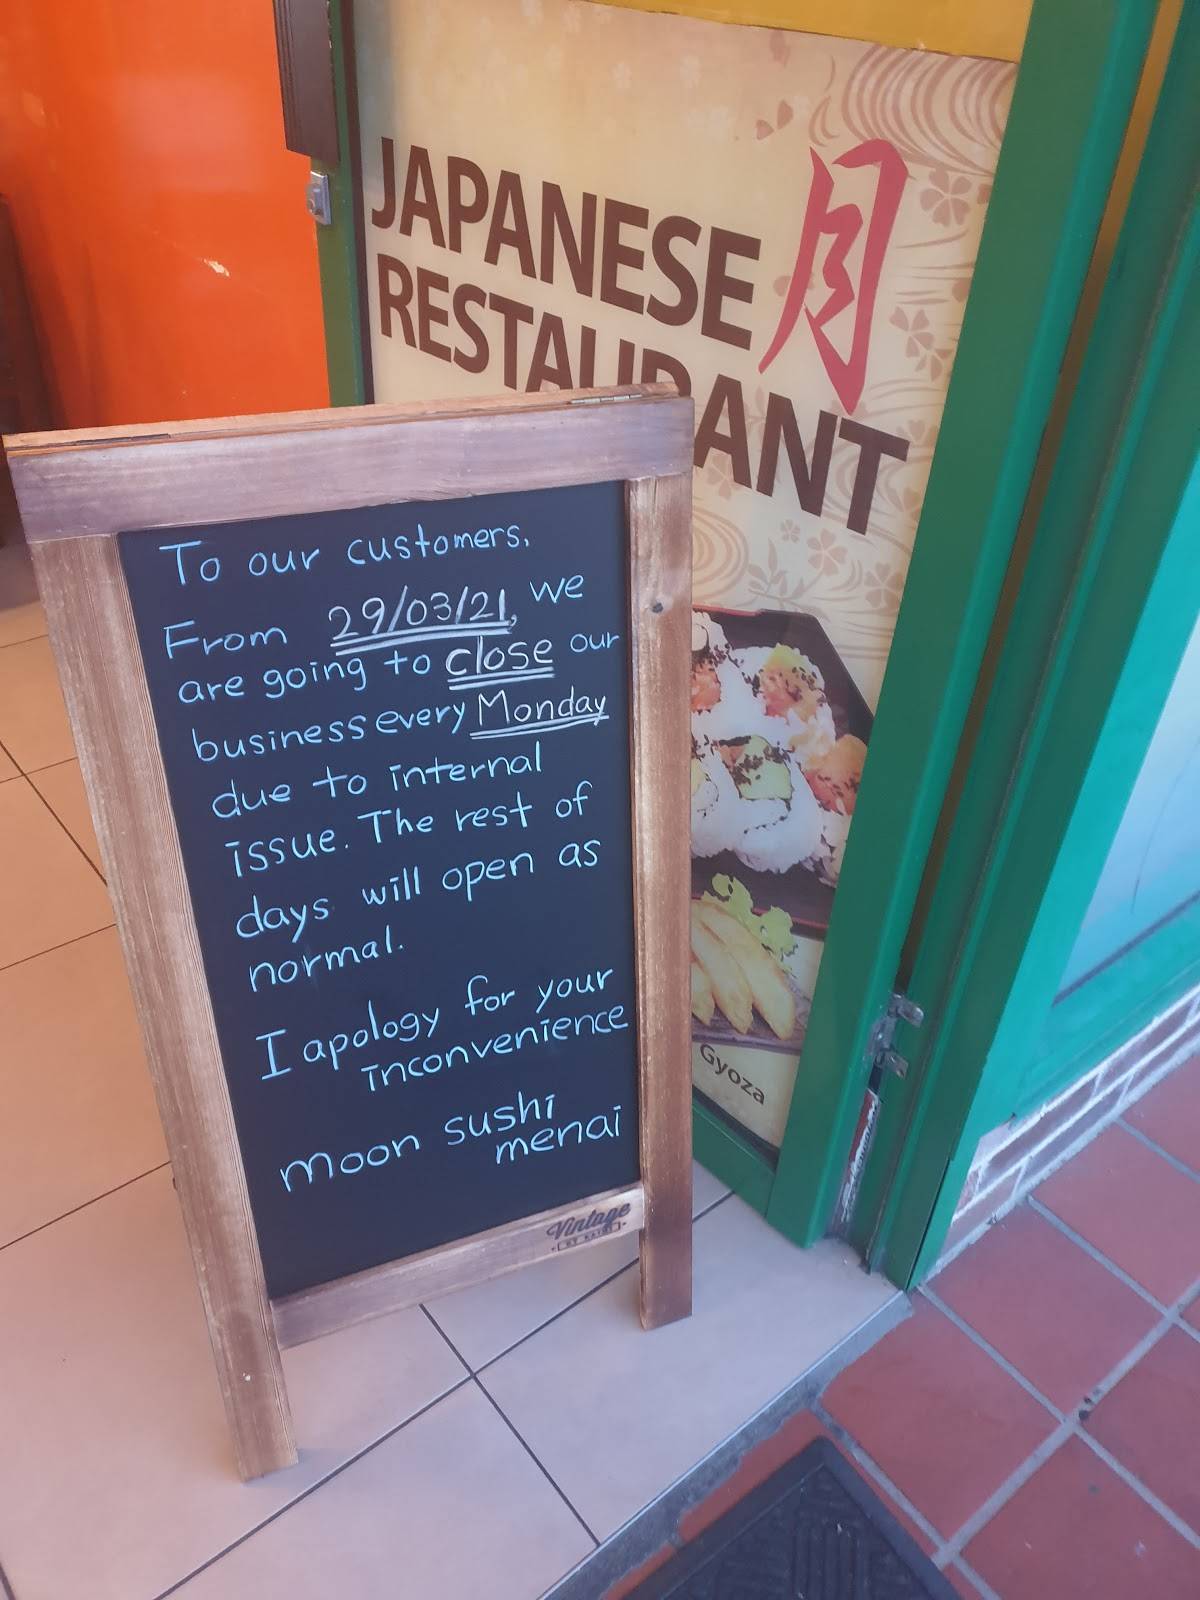 JAPANESE 月
RESTAURANT
To our customers,
From 29/03/21, we
are going to close our
business every Monday
due to internal
issue. The rest of
days will open as
normal.
I apology for your
inconvenience
moon sushi
menai
Vintage
Gyoza